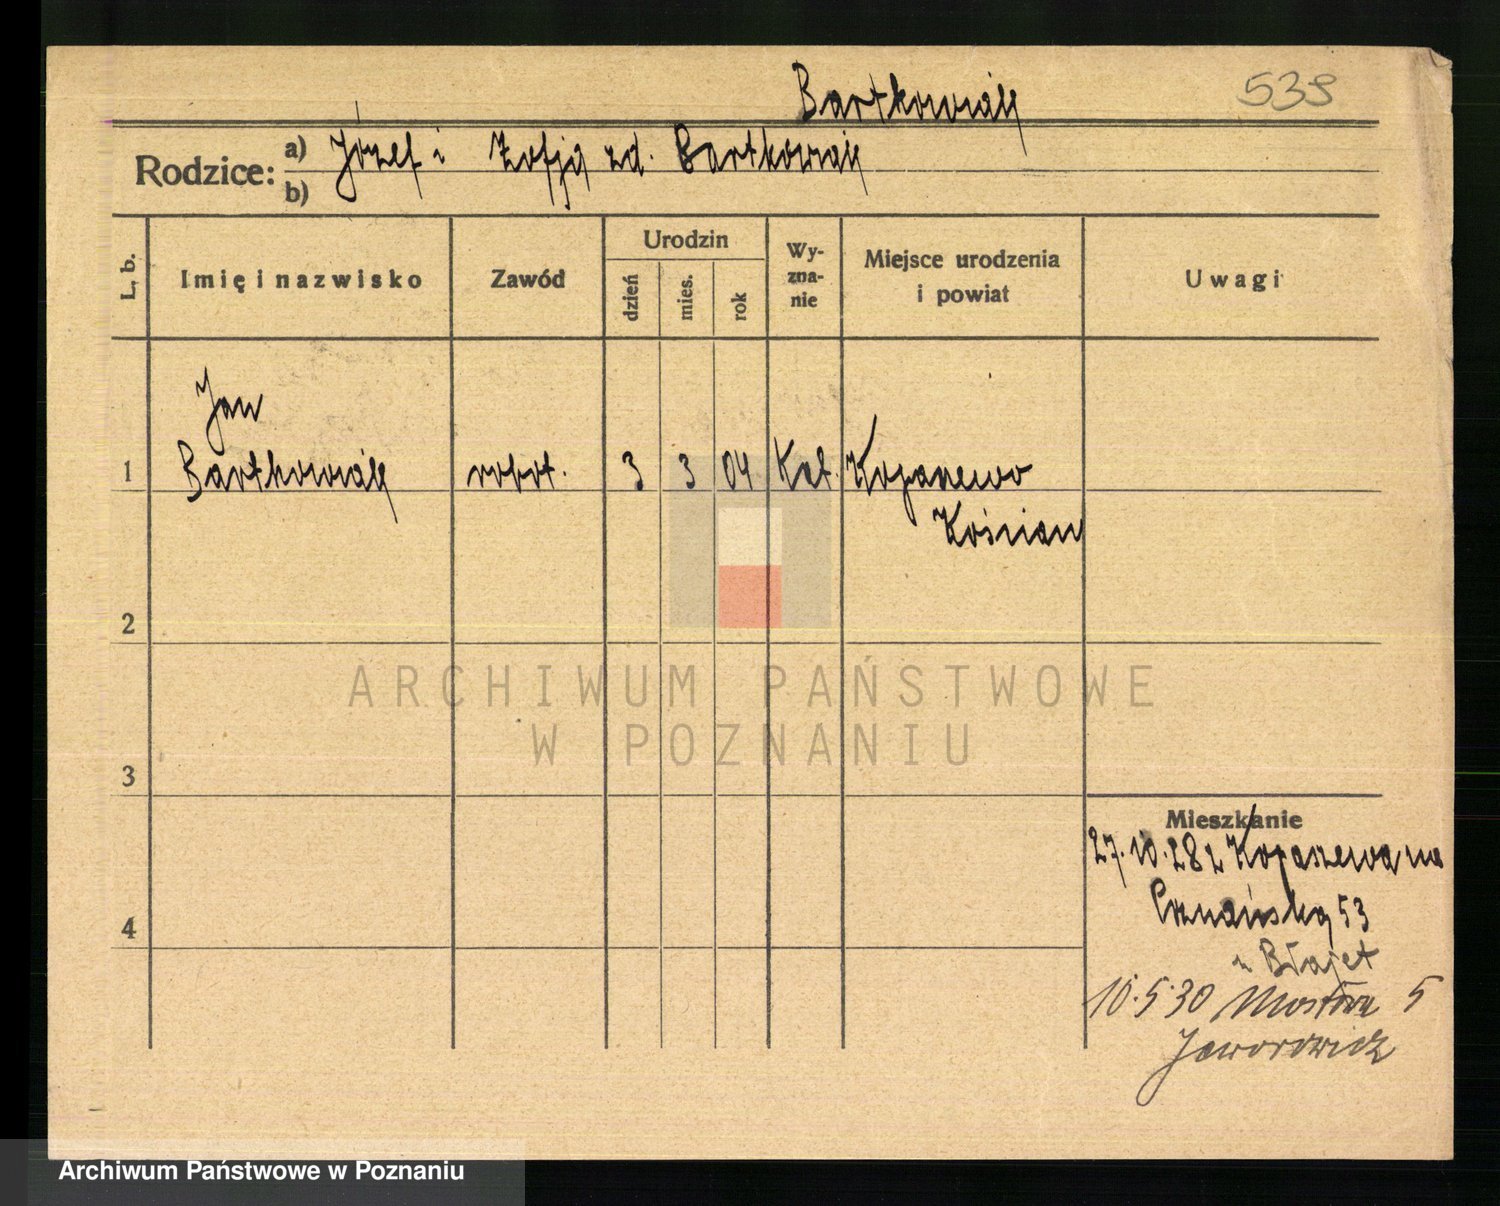 Bartkowiak 539
Rodzice: a) Józef i Zofja zd. Bartkowiak
b)
L. b. Imię i nazwisko Zawód Urodzin Wy-zna-nie Miejsce urodzenia i powiat Uwagi
dzień mies. rok
Jan
1 Bartkowiak robot. 3 3 04 Kat. Kopaszewo
Kościan
2
ARCHIWUM PAŃSTWOWE
W POZNANIU
3
Mieszkanie
27.10.28 z Kopaszewa na
4 Poznańską 53
u Błajet
10.5.30 Mostowa 5
Jaworowicz
Archiwum Państwowe w Poznaniu